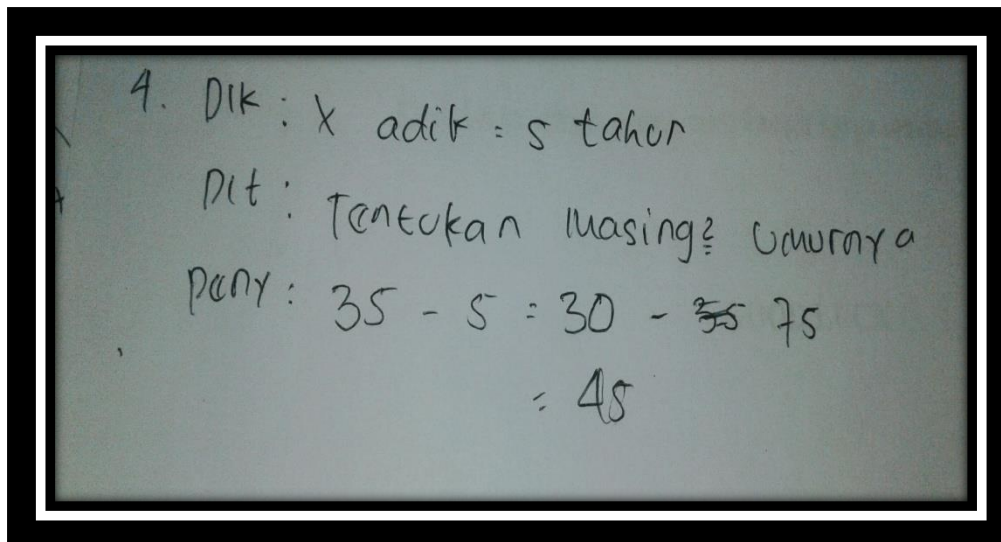 4. Dik : X adik = 5 tahun
Dit : Tentukan masing² umurnya
peny : 35 - 5 = 30 - 75
= 45